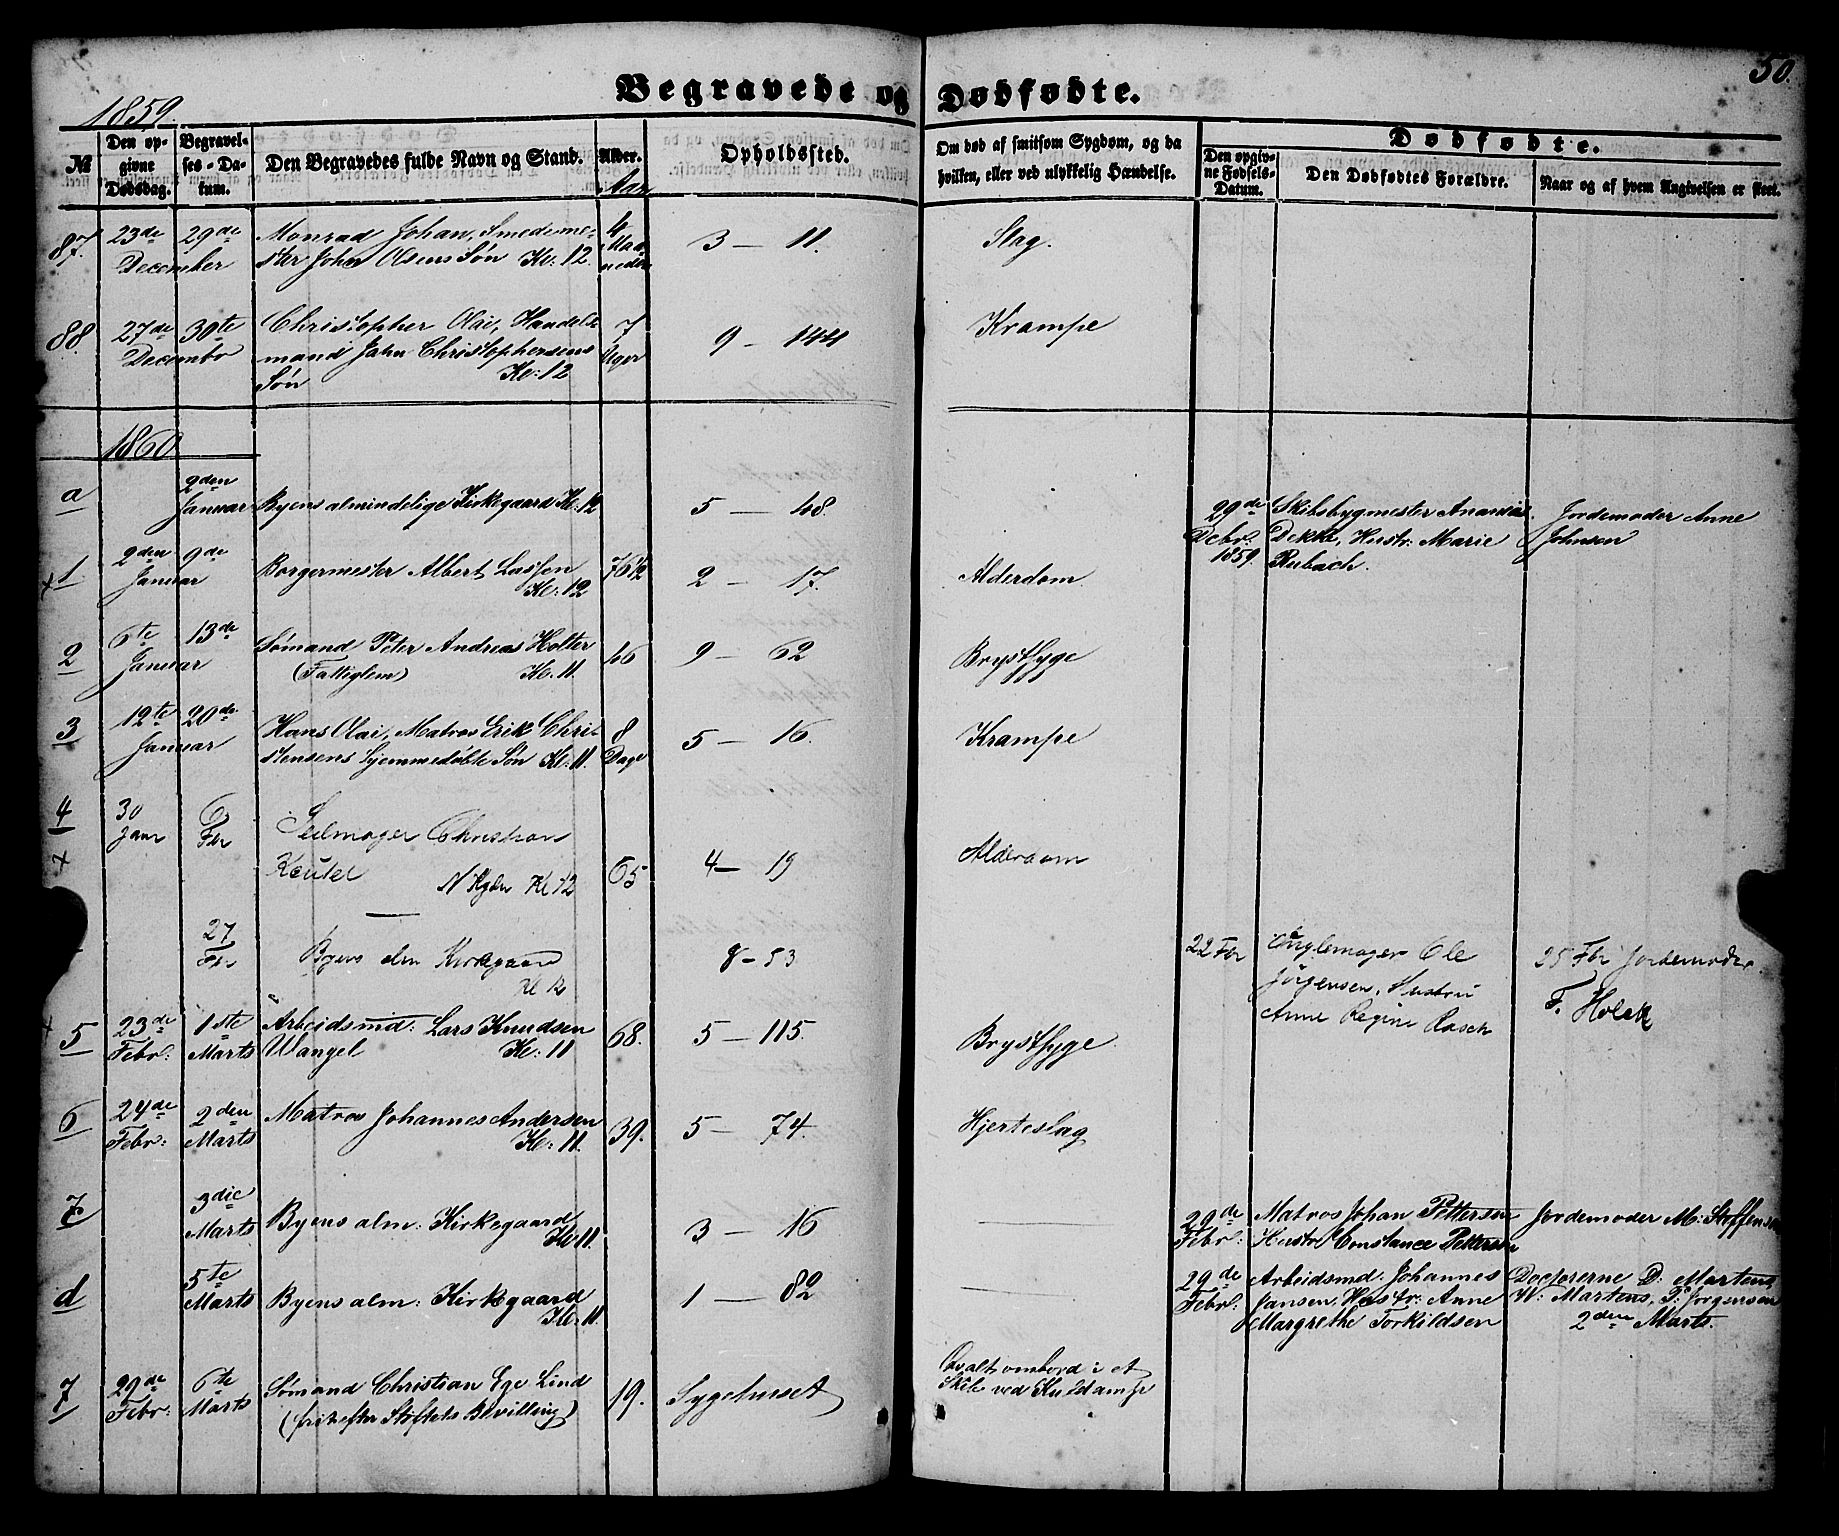 50.
Begravede og Dødfødte.
1859.
№
Den opgivne Dødsdag.
Begravelses-Datum.
Den Begravedes fulde Navn og Stand.
Alder.
Aar
Opholdssted.
Om død af smitsom Sygdom, og da
hvilken, eller ved ulykkelig Hændelse.
Dødfødte.
Den opgivne Fødsels-Datum.
Den Dødfødtes Forældre.
Naar og af hvem Angivelsen er skeet.
87. 23de 29de Monrad Johan, Smedeme- 4 3 — 11. Slag.
December ster John Olsens Søn Kl: 12. Maaneder
88. 27de 30te Christopher Olai, Handels 7 9 — 144 Krampe
Decembr mand Jahn Christophersens Uger
Søn Kl: 12
1860
a 2den Januar Byens almindelige Kirkegaard Kl: 12 5 — 48. 29de Debr. 1859. Skibsbygmester Ananias Jordemoder Anne
Dekke, Hustr: Marie Johnsen
Rubach.
1 2den 9de Borgermester Albert Lassen 76½ 2 — 17. Alderdom.
Januar Kl: 12
2 6te 13de Sømand Peter Andreas Holter 46 9 — 62 Brystsyge
Januar (Fattiglem) Kl. 11.
3 12te 20de Hans Olai, Matros Erik Chri- 8 5 — 16. Krampe
Januar stensens hjemmedøbte Søn Kl. 11. Dage
4 30 6 Seilmager Christian
Janr Fbr Keutel N Kgdn Kl 12 65 4 — 19 Alderdom
27 Fbr Byens alm Kirkegaard 8 - 53 22 Fbr Ole 25 Fbr Jordemoder
Kl 12 Jörgensen, Hustru F. Holck
Anne Regine Rasch
5 23de 1ste Arbeidsmd: Lars Knudsen 68. 5 — 115. Brystsyge.
Febr: Marts Wangel Kl: 11
6 24de 2den Matros Johannes Andersen 39. 5 — 74. Hjerteslag
Febr: Marts Kl: 11.
3die Marts Byens alm: Kirkegaard 3 — 16 29de Matros Johan Pettersen Jordemoder M: Steffensen
Kl 11. Febr: Hustr Constance Pettersen
d 5te Marts Byens alm: Kirkegaard 1 — 82 29de Arbeidsmd: Johannes Doctorerne D: Martens
Kl: 11. Febr: Jansen, Hustr: Anne W: Martens, P: Jørgensen
Margrethe Torkildsen 2den Marts.
7 29de 6te Sømand Christian Ege Lind 19. Sygehuset Qvalt ombord i et
Febr: Marts (frit efter Stiftets Bevilling) Skib ved Kuldamp